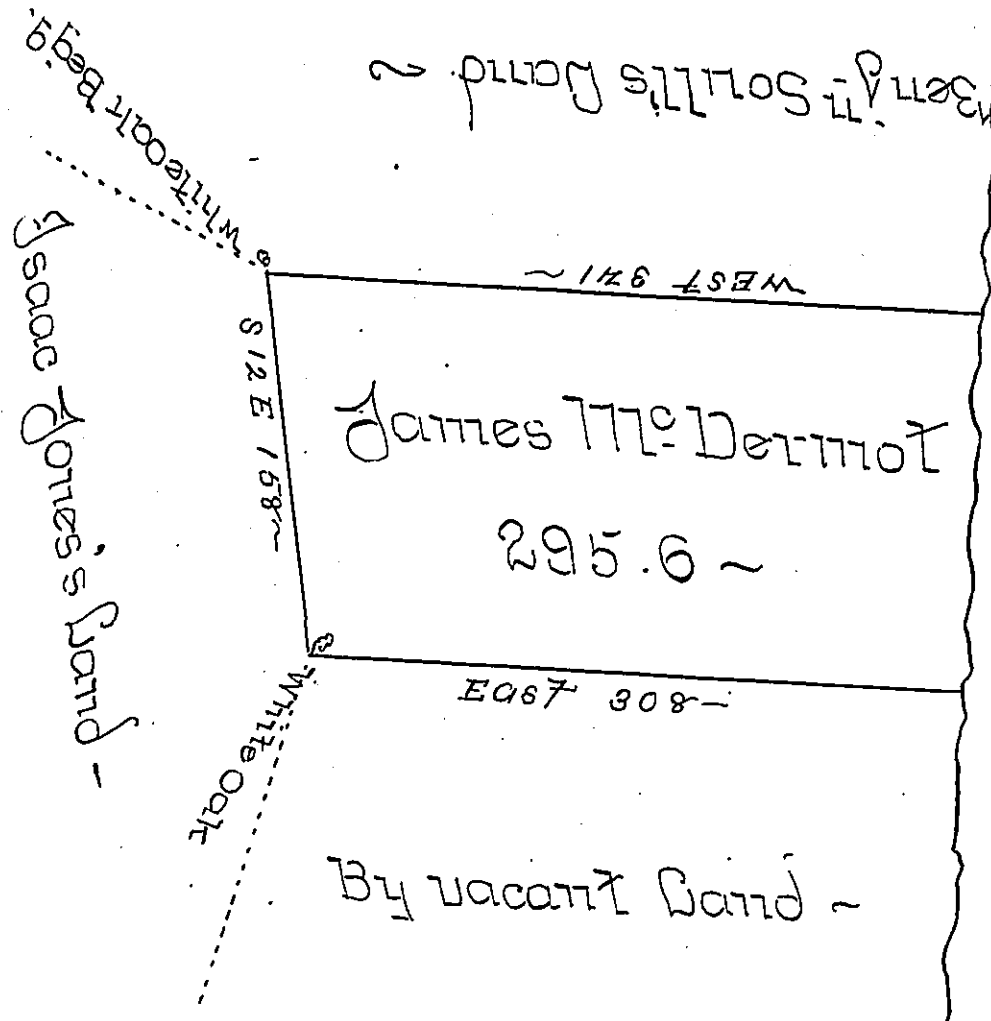 Benjn. Soull's Land ~
White oak Beg'g.
WEST 341 ~
Isaac Jones's Land -
S 12 E 158 ~
James McDermot
295.6 ~
East 308 -
White Oak
By vacant Land ~